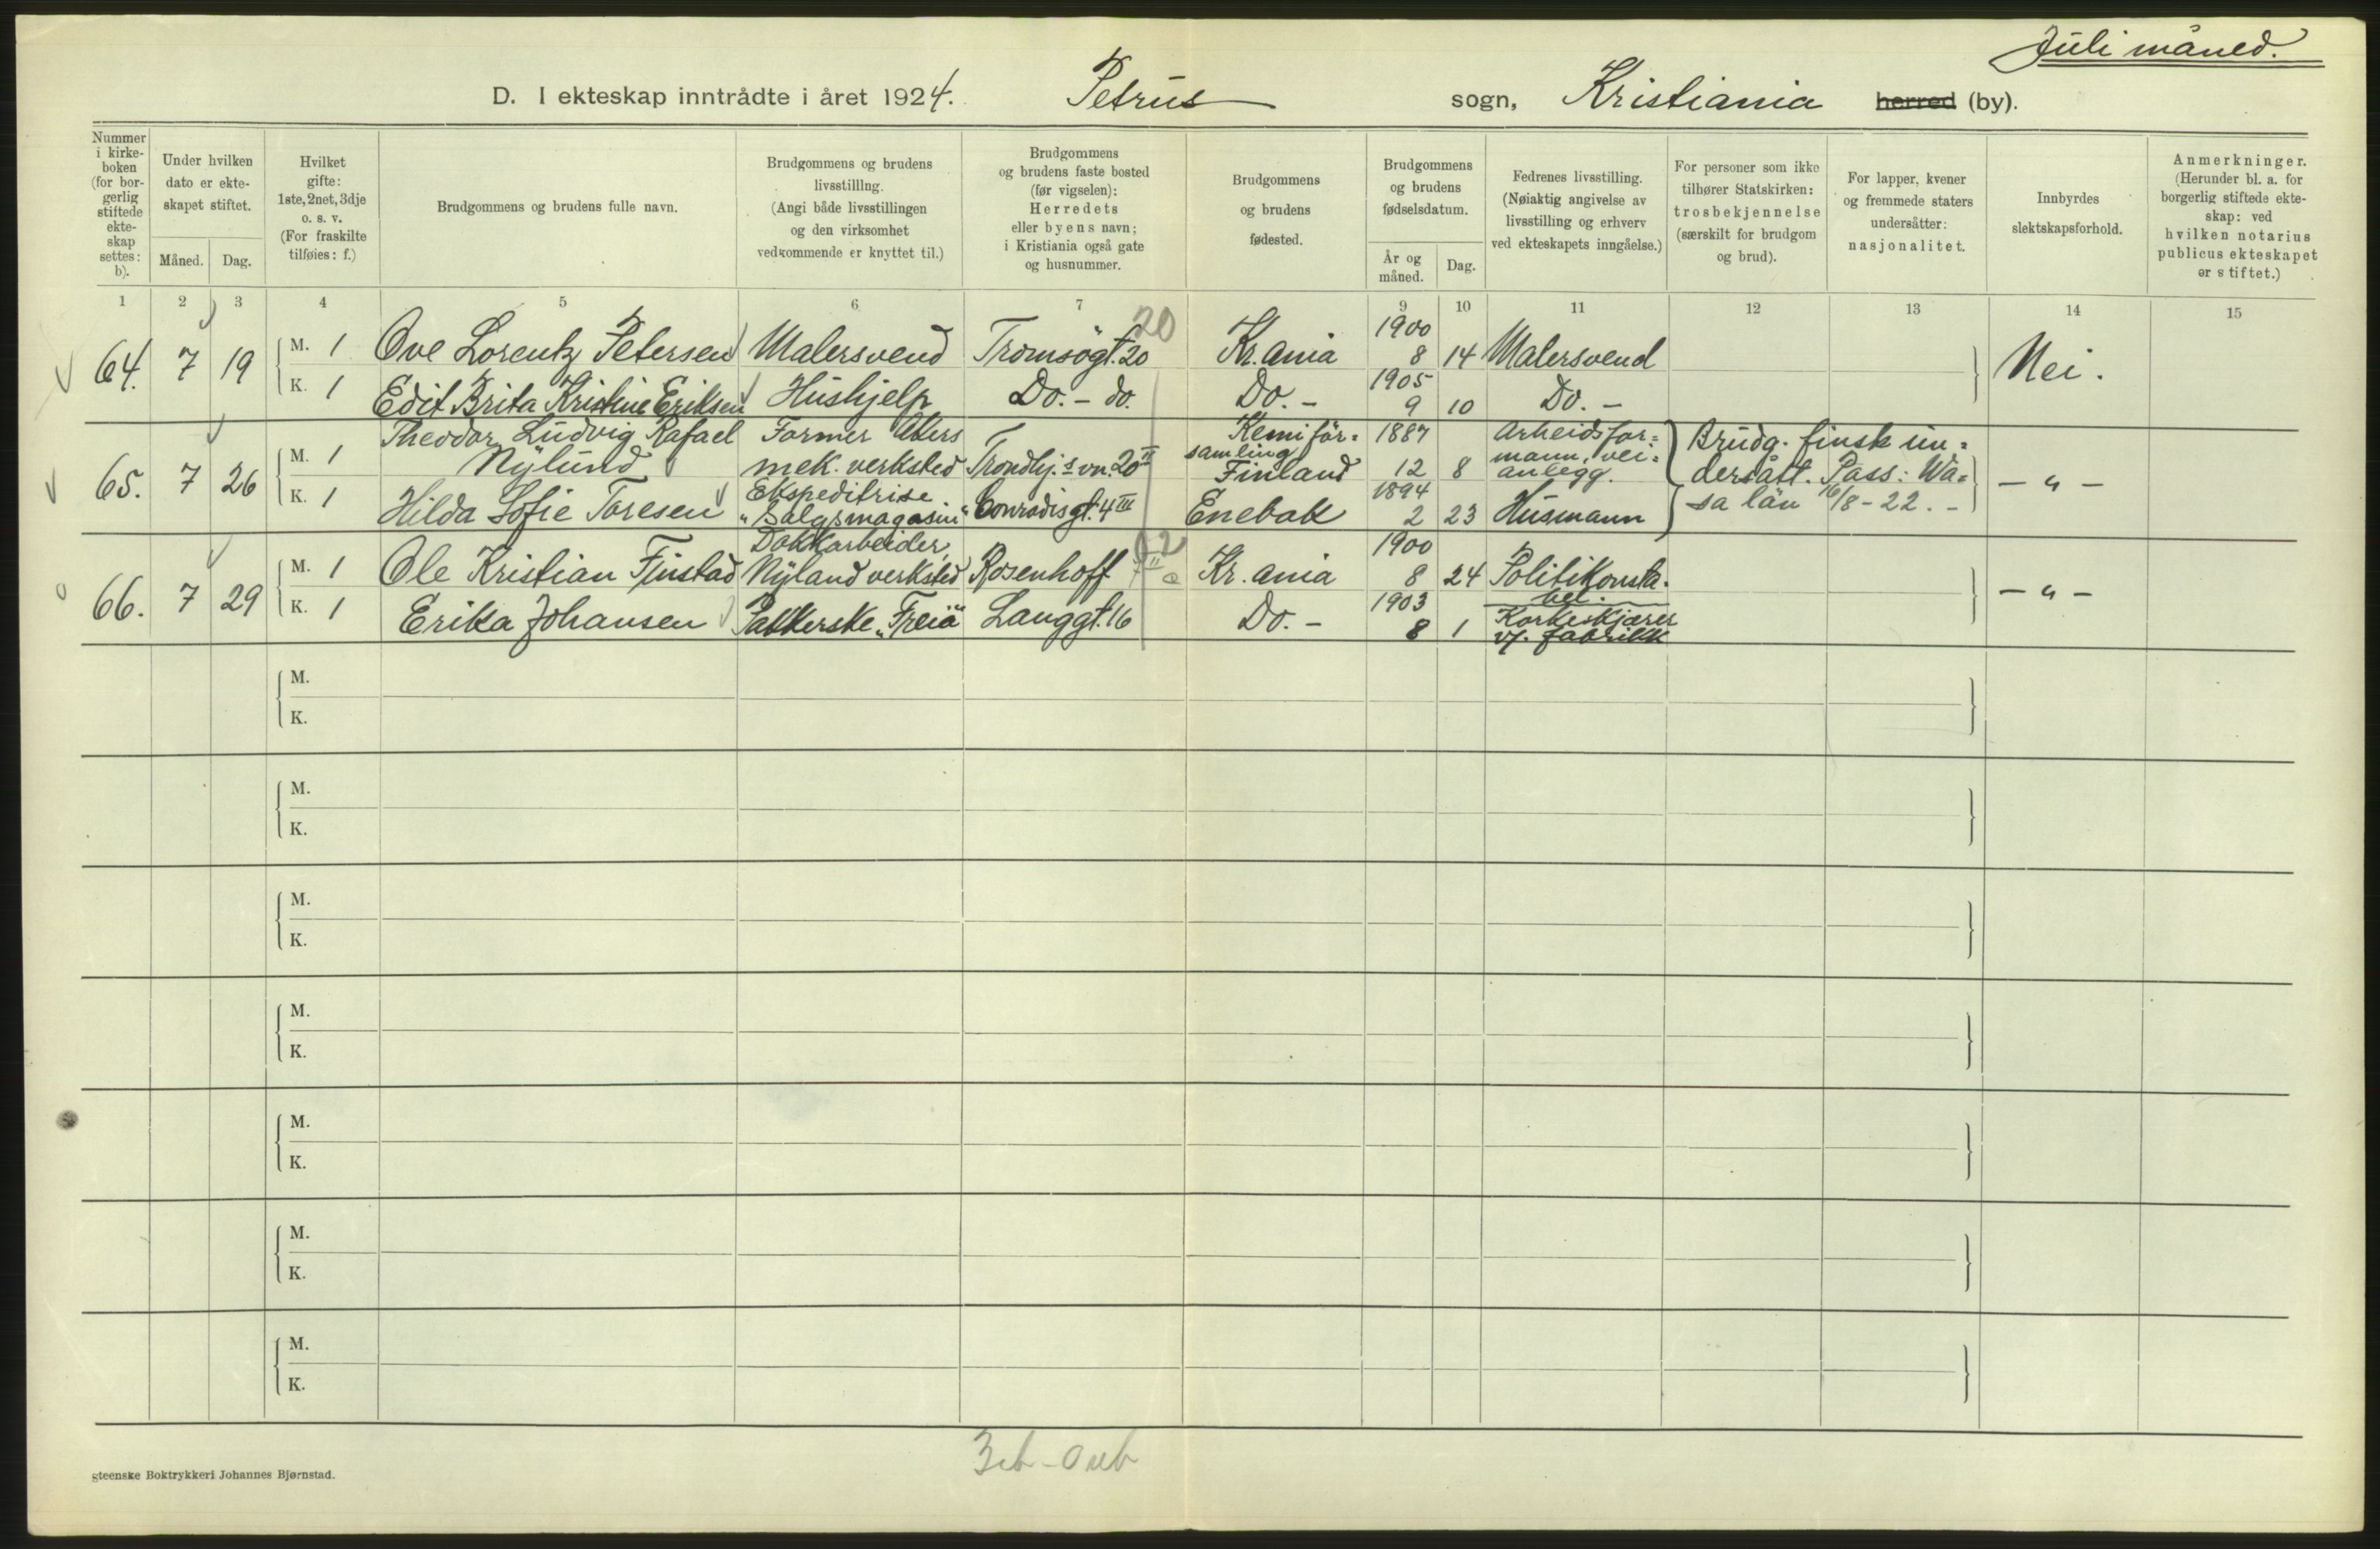 Juli måned.
D. I ekteskap inntrådte i året 1924. Petrus sogn, Kristiania herred (by).
Nummer i kirke- boken (for bor- gerlig stiftede ekte- skap settes: b).
Under hvilken dato er ekte- skapet stiftet.
Måned. Dag.
Hvilket gifte: 1ste, 2net, 3dje o. s. v. (For fraskilte tilføies: f.)
Brudgommens og brudens fulle navn.
Brudgommens og brudens livsstilling. (Angi både livsstillingen og den virksomhet vedkommende er knyttet til.)
Brudgommens og brudens faste bosted (før vigselen): Herredets eller byens navn; i Kristiania også gate og husnummer.
Brudgommens og brudens fødested.
Brudgommens og brudens fødselsdatum.
År og måned. Dag.
Fedrenes livsstilling. (Nøiaktig angivelse av livsstilling og erhverv ved ekteskapets inngåelse.)
For personer som ikke tilhører Statskirken: trosbekjennelse (særskilt for brudgom og brud).
For lapper, kvener og fremmede staters undersåtter: nasjonalitet.
Innbyrdes slektskapsforhold.
Anmerkninger. (Herunder bl. a. for borgerlig stiftede ekte- skap: ved hvilken notarius publicus ekteskapet er stiftet.)
1 2 3 4 5 6 7 8 9 10 11 12 13 14 15
20
64. 7 19 M. 1 Ove Lorentz Petersen Malersvend Tromsøgt. 20 Kr.ania 1900 8 14 Malersvend Nei.
K. 1 Edit Brita Kristine Eriksen Hushjelp Do. - do. Do. - 1905 9 10 Do. -
65. 7 26 M. 1 Theodor Ludvig Rafael Nylund Former Akers mek. verksted Trondhj.s vn. 20 II Kemi för= samling Finland 1887 12 8 Arbeidsfor= mann, vei= anlegg. Brudg. finsk un= dersått. Pass: Wa= sa län 16/8-22. - - " -
K. 1 Hilda Sofie Toresen Ekspeditrise "Salgsmagasin" Conradisgt. 4 III Enebak 1894 2 23 Husmann
66. 7 29 M. 1 Ole Kristian Finstad Dokkarbeider, Nyland verksted Rosenhoff Kr.ania 1900 8 24 Politikonsta- bel. - " -
K. 1 Erika Johansen Pakkerske "Freia" Langgt. 16 Do. - 1903 8 1 Korkeskjærer v/ fabrikk
M.
K.
M.
K.
M.
K.
M.
K.
M.
K.
M.
K.
M.
K.
gteenske Boktrykkeri Johannes Bjørnstad.